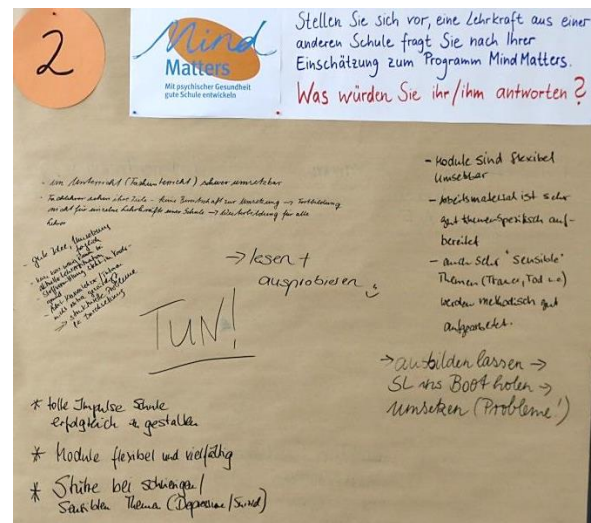 2
Mind
Matters
Mit psychischer Gesundheit
gute Schule entwickeln
Stellen Sie sich vor, eine Lehrkraft aus einer
anderen Schule fragt Sie nach Ihrer
Einschätzung zum Programm MindMatters.
Was würden Sie ihr/ihm antworten?
- im Unterricht (Fachunterricht) schwer umsetzbar
- Fachlehrer sehen ihre Ziele - keine Bereitschaft zur Umsetzung → Fortbildung
nicht für einzelne Lehrkräfte einer Schule → Weiterbildung für alle
Lehrer
- gute Idee, Umsetzung
→ lesen +
ausprobieren
TUN!
- Module sind flexibel
umsetzbar
- Arbeitsmaterial ist sehr
gut themenspezifisch auf-
bereitet
- auch sehr "sensible"
Themen (Trauer, Tod
werden methodisch gut
aufgearbeitet.
→ ausbilden lassen →
SL ins Boot holen →
umsetzen (Probleme!)
* tolle Impulse Schule
erfolgreich zu gestalten
* Module flexibel und vielfältig
* Stütze bei schwierigen/
sensiblen Themen (Depression/Suizid)